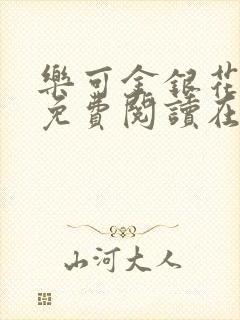 樂可金銀花
免費閱讀在
山河大人